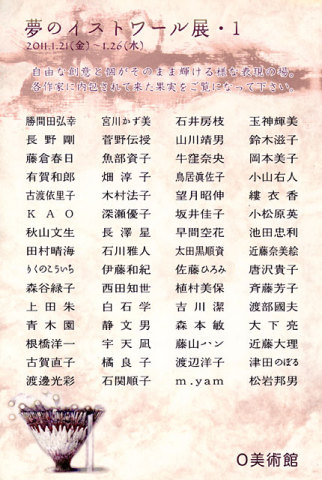 夢のイストワール展・1
2011.1.21(金)〜1.26(水)
自由な創意と個がそのまま輝ける様な表現の場。
各作家に内包されて来た果実をご覧になって下さい。
勝間田弘幸 宮川かず美 石井房枝 玉神輝美
長野剛 菅野伝授 山川靖男 鈴木滋子
藤倉春日 魚部資子 牛窪奈央 岡本美子
有賀和郎 畑淳子 鳥居眞佐子 小山右人
古渡依里子 木村法子 望月昭伸 縷衣香
KAO 深瀬優子 坂井佳子 小松原英
秋山文生 長澤星 早間空花 池田忠利
田村晴海 石川雅人 太田黒順資 近藤奈美絵
りくのこういち 伊藤和紀 佐藤ひろみ 唐沢貴子
森谷緑子 西田知世 植村美保 斉藤芳子
上田朱 白石学 吉川潔 渡部國夫
青木園 静文男 森本敏 大下亮
根橋洋一 宇天凪 藤山ハン 近藤大理
古賀直子 橘良子 渡辺洋子 津田のぼる
渡邊光彩 石関順子 m.yam 松岩邦男
O美術館